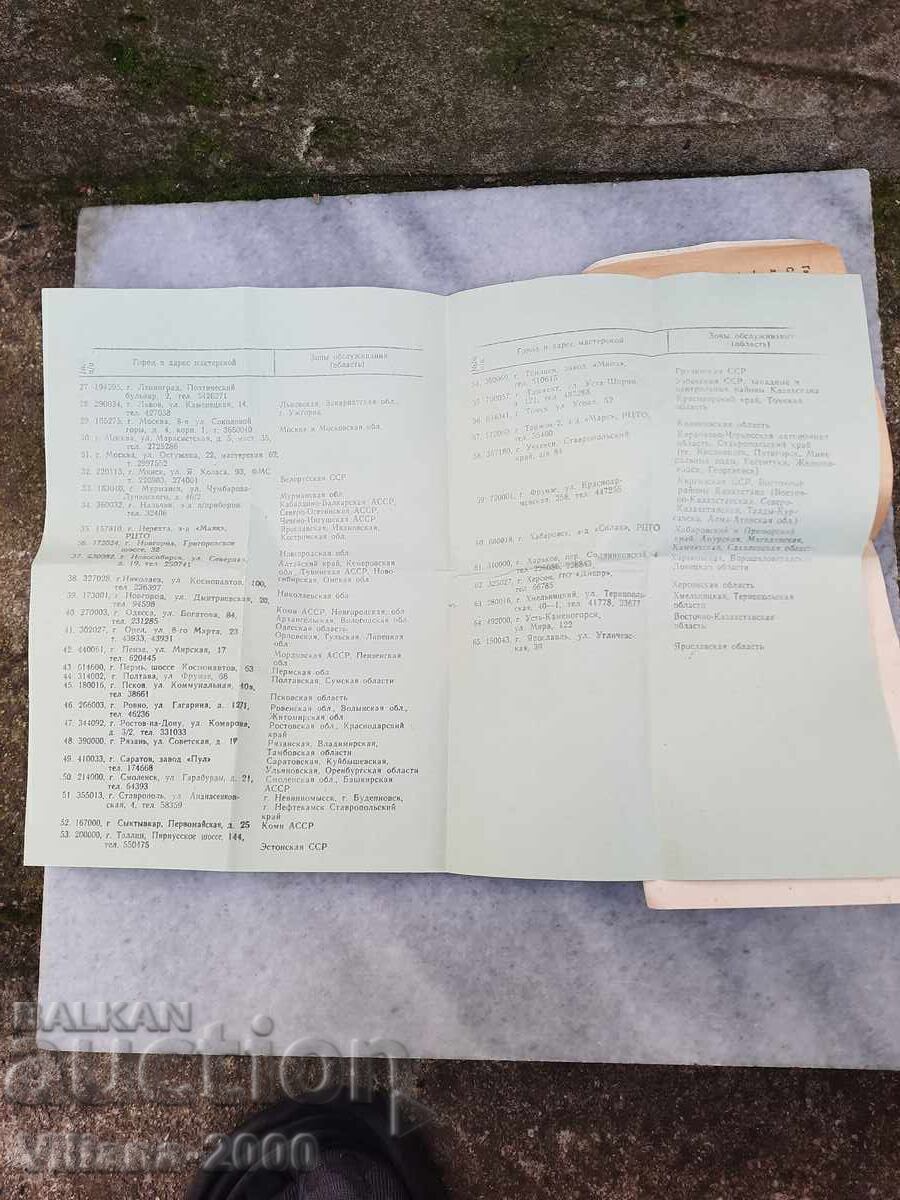 №№ п/п
Город и адрес мастерской
Зоны обслуживания (область)
27. 194295, г. Ленинград, Поэтический
бульвар, 2, тел. 5426271
28. 290034, г. Львов, ул. Каменецкая, 14,
тел. 427038
Львовская, Закарпатская обл.,
г. Ужгород
29. 105275, г. Москва, 8-я ул. Соколиной
горы, д. 4, корп. 1, т. 3650040
Москва и Московская обл.
30. г. Москва, ул. Марксистская, д. 5, маст. 35,
тел. 2725286
31. г. Москва, ул. Остужева, 22, мастерская 67,
т. 2997552
32. 220113, г. Минск, ул. Я. Коласа, 93, ФМС
т. 220983, 374001
Белорусская ССР
33. 183038, г. Мурманск, ул. Чумбарова-
Лучинского, д. 46/2
Мурманская обл.
34. 360032, г. Нальчик, з-д
тел. 32406
Кабардино-Балкарская АССР,
Северо-Осетинская АССР,
Чечено-Ингушская АССР
35. 157810, г. Нерехта, з-д «Маяк», РЦТО
Ярославская, Ивановская,
Костромская обл.
36. 173024, г. Новгород, Григоровское
шоссе, 32
Новгородская обл.
37. г. Новосибирск, ул. Северная,
д. 19, тел. 250741
Алтайский край, Кемеровская
обл., Тувинская АССР, Ново-
сибирская, Омская обл.
38. 327028, г. Николаев, ул. Космонавтов, 100,
тел. 236397
Николаевская обл.
39. 173001, г. Новгород, ул. Дмитриевская, 20,
тел. 94598
Коми АССР, Новгородская обл.
Архангельская, Вологодская обл.
40. 270003, г. Одесса, ул. Богатова, 84,
тел. 231285
Одесская область
41. 302027, г. Орел, ул. 8-го Марта, 23
т. 43933, 43931
Орловская, Тульская, Липецкая
обл.
42. 440061, г. Пенза, ул. Мирская, 17
тел. 620445
Мордовская АССР, Пензенская
обл.
43. 614600, г. Пермь, шоссе Космонавтов, 63
Пермская обл.
44. 314002, г. Полтава, ул. Фрунзе, 66
Полтавская, Сумская области
45. 180016, г. Псков, ул. Коммунальная, 40а,
тел. 38661
Псковская область
46. 266003, г. Ровно, ул. Гагарина, д. 1271,
тел. 46236
Ровенская обл., Волынская обл.,
Житомирская обл.
47. 344092, г. Ростов-на-Дону, ул. Комарова,
д. 3/2, тел. 331033
Ростовская обл., Краснодарский
край
48. 390000, г. Рязань, ул. Советская, д. 19
Рязанская, Владимирская,
Тамбовская области
49. 410033, г. Саратов, завод «Пул»
тел. 174668
Саратовская, Куйбышевская,
Ульяновская, Оренбургская области
50. 214000, г. Смоленск, ул. Гарабурды, д. 21,
тел. 64393
Смоленская обл., Башкирская
АССР
51. 355013, г. Ставрополь, ул.
ская, 4, тел. 58359
г. Невинномысск, г. Буденновск,
г. Нефтекамск Ставропольский
край
52. 167000, г. Сыктывкар, Первомайская, д. 25
Коми АССР
53. 200000, г. Таллин, Пярнусское шоссе, 144,
тел. 550475
Эстонская ССР
№№ п/п
Город и адрес мастерской
Зоны обслуживания
(область)
54. г. Тбилиси, завод
тел. 510615
Грузинская ССР
55. 700057, г. Ташкент, ул. Уста-Ширин,
121, тел.
Узбекская ССР, западные и
центральные районы Казахстана
56. г. Томск, ул. Усова,
Красноярский край, Томская
область
57. з-д «Марс», РЦТО,
тел. 55400
Калининская область
58. 357180, г. Учкекен, Ставропольский
край, а/я 84
Карачаево-Черкесская автономная
область, Ставропольский край
(гг. Кисловодск, Пятигорск, Мине-
ральные воды, Ессентуки, Железно-
водск, Георгиевск)
59. 720001, г. Фрунзе, ул. Красноар-
мейская, 258, тел. 447255
Киргизская ССР, Восточные
районы Казахстана (Восточно-
но-Казахстанская, Северо-
Казахстанская, Талды-Кур-
ганская, Алма-Атинская обл.)
60. 680018, г. Хабаровск, з-д РЦТО
Хабаровский и Приморский
край, Амурская, Магаданская,
Камчатская, Сахалинская области
61. 310000, г. Харьков, пер.
Харьковская, Ворошиловградская,
Донецкая области
62. 325027, г. Херсон, ПКТ «Днепр»,
тел. 66785
Херсонская область
63. 280016, г. Хмельницкий, ул. Тернополь-
ская, 40—1, тел. 41778, 33677
Хмельницкая, Тернопольская
области
64. 492000, г. Усть-Каменогорск,
ул. Мира, 122
Восточно-Казахстанская
область
65. 150043, г. Ярославль, ул. Угличес-
кая, 39
Ярославская область
BALKAN
auction
Villana-2000